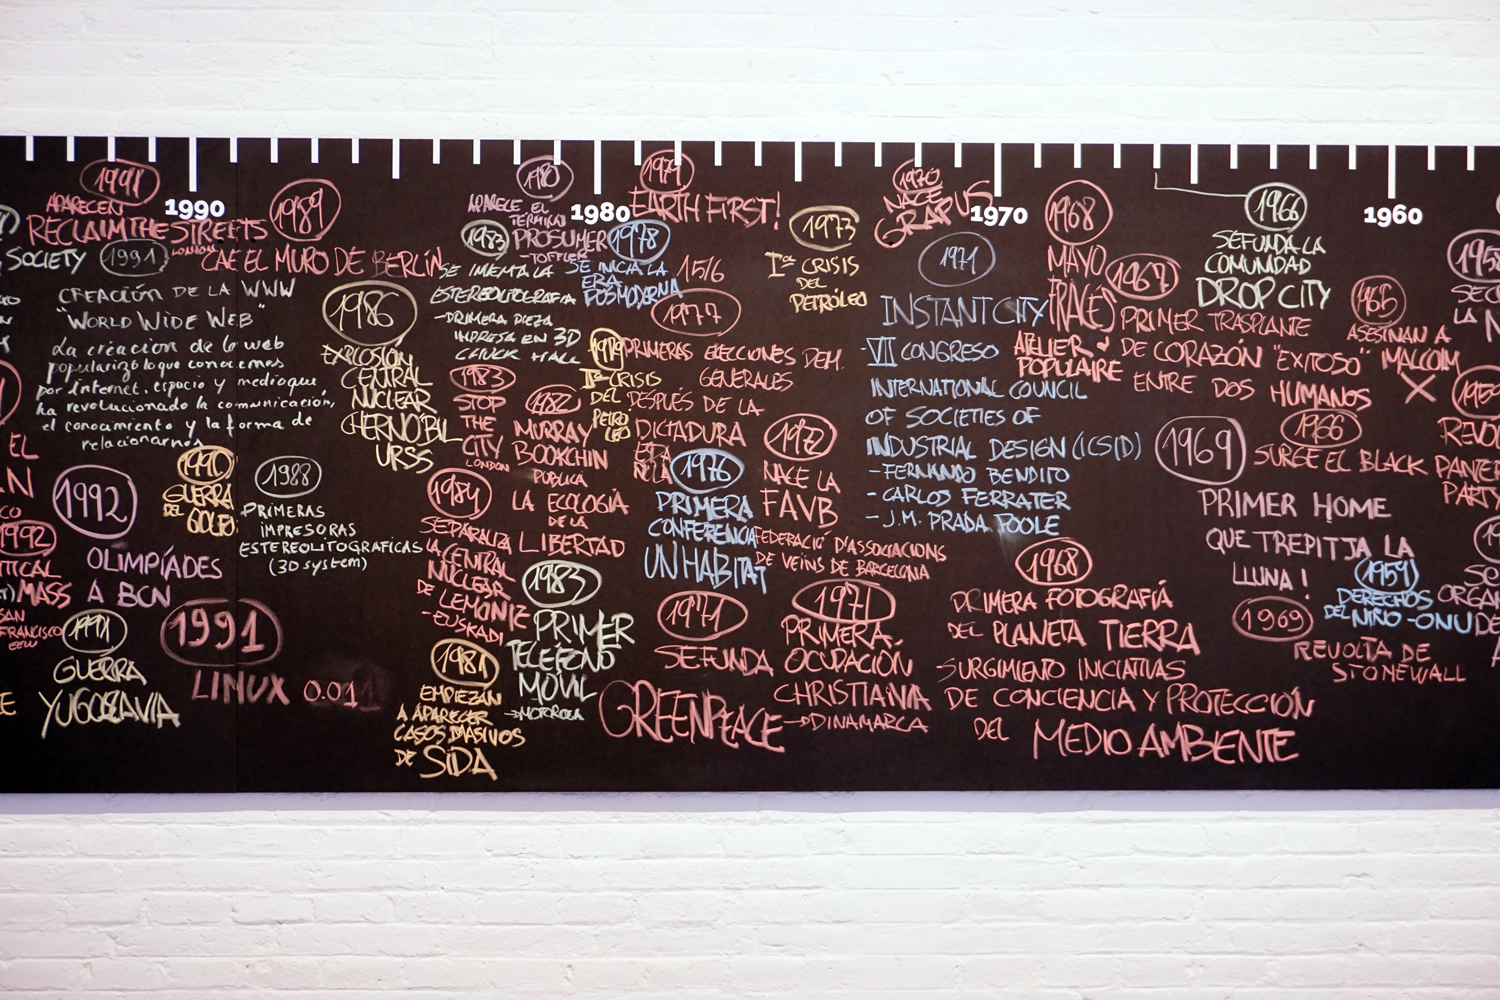 1990
1980
1970
1960
1991
APARECEN
RECLAIM THE STREETS
LONDON
SOCIETY
1991
CREACIÓN DE LA WWW
"WORLD WIDE WEB"
La creacion de la web
popularizó lo que conocemos
por Internet, espacio y medio que,
ha revolucionado la comunicación,
el conocimiento y la forma de
relacionarnos
1989
CAE EL MURO DE BERLÍN
1986
EXPLOSIÓN
CENTRAL
NUCLEAR
CHERNÓBIL
URSS
EL
1992
OLIMPÍADES
A BCN
1990
GUERRA
DEL
GOLFO
1988
PRIMERAS
IMPRESORAS
ESTEREOLITOGRAFICAS
(3D system)
1992
MASS
SAN
FRANCISCO
EEUU
1991
GUERRA
YUGOSLAVIA
1991
LINUX 0.01
1980
APARECE EL
TERMINO
PROSUMER
-TOFFLER
1983
SE INVENTA LA
ESTEREOLITOGRAFIA
-PRIMERA PIEZA
IMPRESA EN 3D
CHUCK HALL
1983
STOP
THE
CITY
LONDON
1982
MURRAY
BOOKCHIN
PUBLICA
LA ECOLOGIA
DE LA
LIBERTAD
1984
SEPARALIZA
LA CENTRAL
NUCLEAR
DE LEMONIZ
-EUSKADI
1983
PRIMER
TELÉFONO
MÓVIL
→MOTOROLA
1981
EMPIEZAN
A APARECER
CASOS MASIVOS
DE SIDA
1979
EARTH FIRST!
1978
SE INICIA LA
ERA
POSMODERNA
15/6
1977
PRIMERAS ELECCIONES DEM.
GENERALES
DESPUÉS DE LA
DICTADURA
1979
IIª CRISIS
DEL
PETROLEO
1976
PRIMERA
CONFERENCIA
UN HABITAT
1972
NACE LA
FAVB
FEDERACIÓ D'ASSOCIACIONS
DE VEÏNS DE BARCELONA
1971
SEFUNDA
GREENPEACE
1971
PRIMERA
OCUPACIÓN
CHRISTIANIA
→DINAMARCA
1973
Iª CRISIS
DEL
PETRÓLEO
1970
NACE
GRAPUS
1971
INSTANT CITY
-VII CONGRESO
INTERNATIONAL COUNCIL
OF SOCIETIES OF
INDUSTRIAL DESIGN (ICSID)
-FERNANDO BENDITO
-CARLOS FERRATER
-J.M. PRADA POOLE
1968
MAYO
FRACÉS
ATELIER
POPULAIRE
1967
PRIMER TRASPLANTE
DE CORAZÓN "EXITOSO"
ENTRE DOS HUMANOS
1966
SEFUNDA LA
COMUNIDAD
DROP CITY
1965
ASESINAN A
MALCOLM
X
1966
SURGE EL BLACK PANTER
PARTY
1969
PRIMER HOME
QUE TREPITJA LA
LLUNA!
1968
PRIMERA FOTOGRAFÍA
DEL PLANETA TIERRA
-SURGIMIENTO INICIATIVAS
DE CONCIENCIA Y PROTECCIÓN
DEL MEDIO AMBIENTE
1959
DERECHOS
DEL NIÑO-ONU
1969
REVOLTA DE
STONEWALL